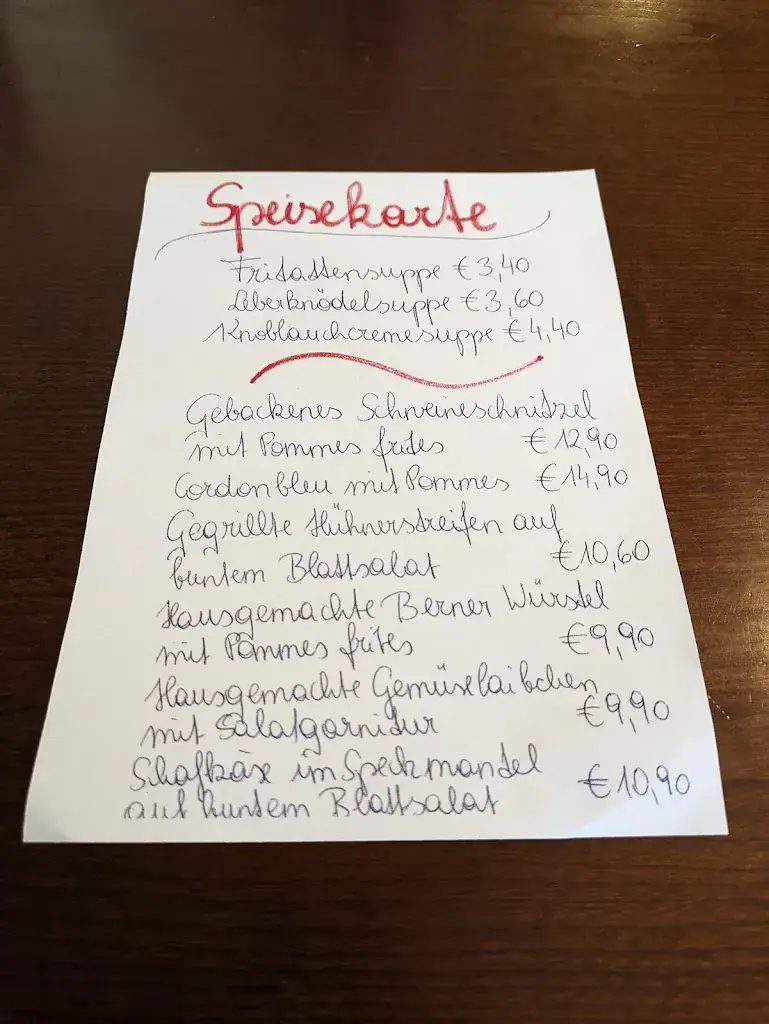 Speisekarte
Fritattensuppe € 3,40
Leberknödelsuppe € 3,60
Knoblauchcremesuppe € 4,40
Gebackenes Schweineschnitzel
mit Pommes frites € 12,90
Cordonbleu mit Pommes € 14,90
Gegrillte Hühnerstreifen auf
buntem Blattsalat € 10,60
Hausgemachte Berner Würstel
mit Pommes frites € 9,90
Hausgemachte Gemüselaibchen
mit Salatgarnitur € 9,90
Schafkäse im Speckmantel
auf buntem Blattsalat € 10,90